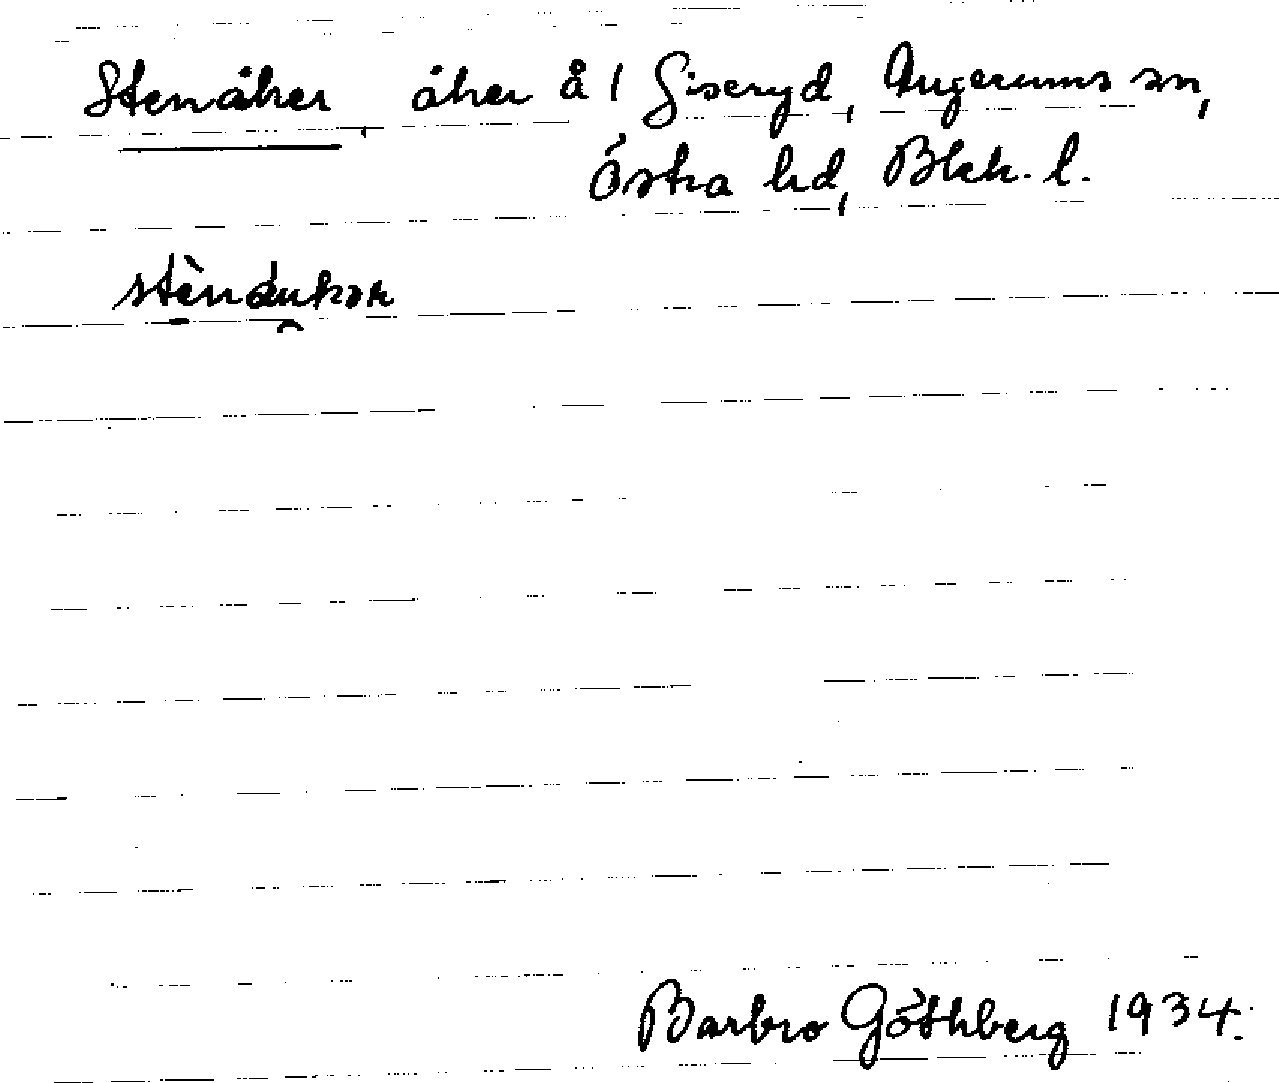 Stenåker, åker å 1 Giseryd, Augerums sn,
Östra hd, Blek. l.
Barbro Göthberg 1934.